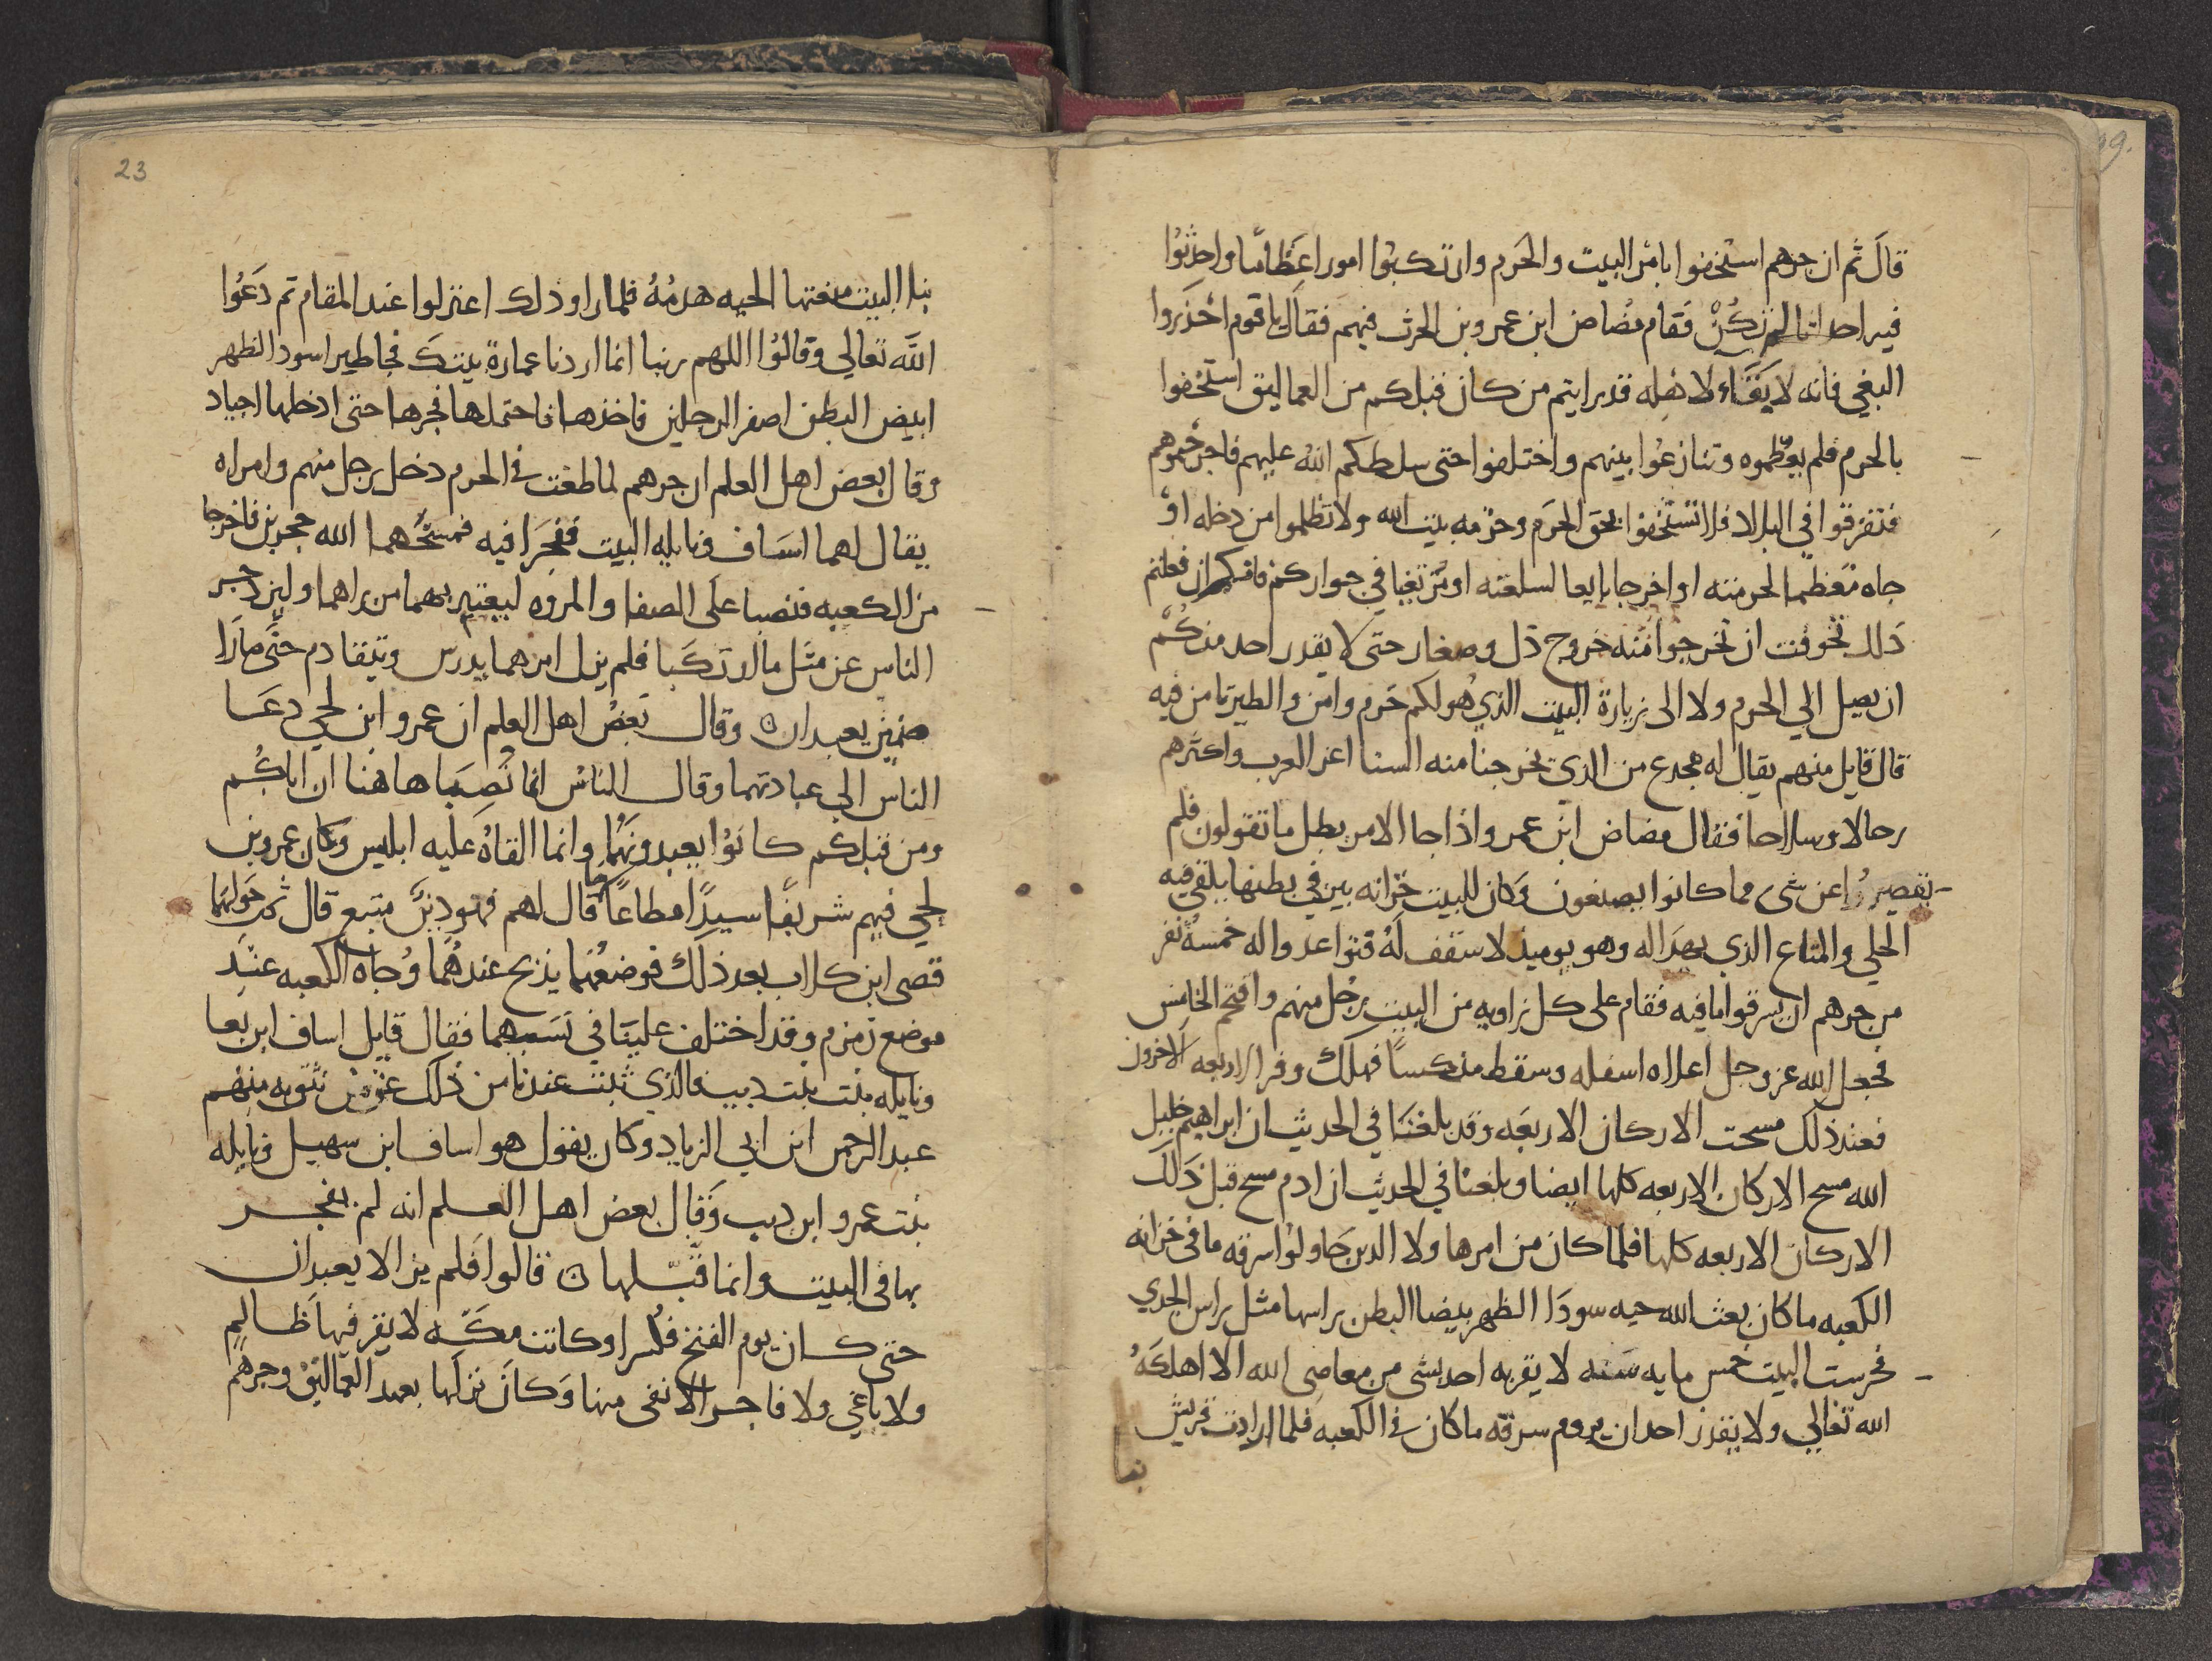 قال ثم ان جرهم استخفوا بامر البيت والحرم وارتكبوا امورا عظاما واحدثوا
فيه احداثا لم تكن فقام مضاض ابن عمرو بن الحرث فيهم فقال يا قوم احذروا
البغي فانه لا بقاء لاهله قد رايتم من كان قبلكم من العماليق استخفوا
بالحرم فلم يعظموه وتنازعوا بينهم واختلفوا حتى سلطكم الله عليهم فاخرجتموهم
فتفرقوا في البلاد فلا تستخفوا بحق الحرم وحرمه بيت الله ولا تظلموا من دخله او
جاه معظما لحرمته او اخر جا بايعا لسلعته او مرتغبا في جواركم فانكم ان فعلتم
ذلك تخوفت ان تخرجوا منه خروج ذل وصغار حتى لا يقدر احد منكم
ان يصل الي الحرم ولا الى زيارة البيت الذي هو لكم حرم وامن والطير تامن فيه
قال قايل منهم يقال له مجدع من الذي يخرجنا منه السنا اعز العرب واكثرهم
رجالا وسلاحا فقال مضاض ابن عمرو اذا جا الامر بطل ما تقولون فلم
يقصروا عن شى مما كانوا يصنعون وكان للبيت خزانه بير في بطنها يلقى فيه
الحلي والمتاع الذي يهدا له وهو يوميذ لا سقف له فتواعدوا له خمسة نفر
من جرهم ان يسرقوا ما فيه فقام على كل زاويه من البيت رجل منهم واقتحم الخامس
فجعل الله عز وجل اعلاه اسفله وسقط منكسا فهلك وفر الاربعه الاخرون
فعند ذلك مسحت الاركان الاربعه وقد بلغنا في الحديث ان ابراهيم خليل
الله مسح الاركان الاربعه كلها ايضا وبلغنا في الحديث ان ادم مسح قبل ذلك
الاركان الاربعه كلها فلما كان من امرها ولا الدين حاولوا سرقه ما فى خزانه
الكعبه ما كان بعث الله حيه سودا الظهر بيضا البطن راسها مثل راس الجدي
فحرست البيت خمس مايه سنه لا يقربه احد بشى من معاصى الله الا اهلكه
الله تعالي ولا يقدر احد ان يروم سرقه ما كان في الكعبه فلما ارادت قريش
بنا
23
بنا البيت منعتها الحيه هدمه فلما راو ذلك اعتزلوا عند المقام ثم دعوا
الله تعالي وقالوا اللهم ربنا انما اردنا عمارة بيتك فجا طير اسود الظهر
ابيض البطن اصفر الرجلين فاخذها فاحتملها فجرها حتى ادخلها اجياد
وقال بعض اهل العلم ان جرهم لما طغت في الحرم دخل رجل منهم وامراه
يقال لهما اساف ونايله البيت ففجرا فيه فمسخهما الله حجرين فاخرجا
من الكعبه فنصبا على الصفا والمروه ليعتبر بهما من راهما ولينزجر
الناس عن مثل ما ارتكبا فلم يزل امرهما يدرس ويتقادم حتى صارا
صنمين يعبدان وقال بعض اهل العلم ان عمرو ابن لحي دعا
الناس الي عبادتهما وقال للناس انما نصبا هاهنا ان اباكم
ومن قبلكم كانوا يعبدونهما وانما القاه عليه ابليس وكان عمرو بن
لحي فيهم شريفا سيدا مطاعا ما قال لهم فهو دين متبع قال ثم حولهما
قصى ابن كلاب بعد ذلك فوضعهما يذبح عندهما وجاه الكعبه عند
موضع زمزم وقد اختلف علينا في نسبهما فقال قايل اساف ابن بعا
ونايله بنت ديب فالذي ثبت عندنا من ذلك عمن نثق به منهم
عبد الرحمن ابن ابي الزياد وكان يقول هو اساف ابن سهيل ونايله
بنت عمرو ابن ديب وقال بعض اهل العلم انه لم يفجر
بها فى البيت وانما قبلها ن قالوا فلم يزالا يعبدان
حتى كان يوم الفتح فكسرا وكانت مكه لا يقر فيها ظالم
ولا باغي ولا فاجر الا نفى منها وكان نزلها بعهد العماليق وجرهم